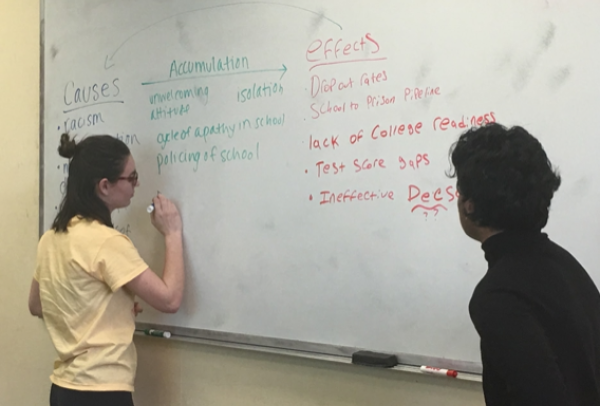 Causes
• racism
Accumulation
unwelcoming isolation
attitude
cycle of apathy in school
policing of school
effects
• Drop out rates
• School to Prison Pipeline
• lack of College readiness
• Test score gaps
• Ineffective Dec